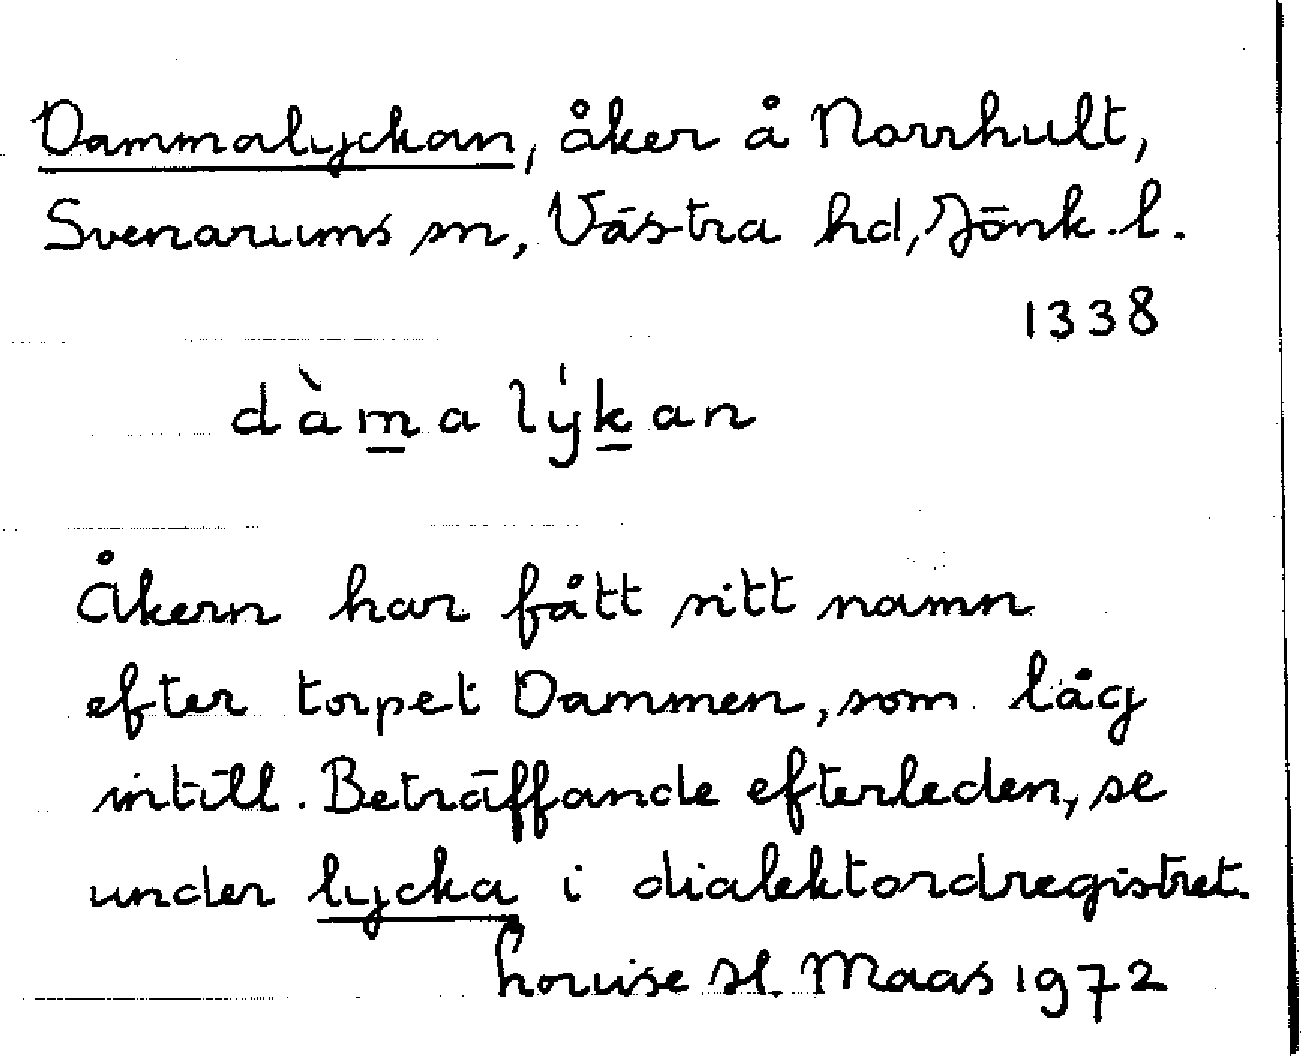 Dammalyckan, åker å Norrhult,
Svenarums sn, Västra hd, Jönk. l.
1338
dàmalýkan
Åkern har fått sitt namn
efter torpet Dammen, som låg
intill. Beträffande efterleden, se
under lycka i dialektordregistret.
Louise H. Maas 1972